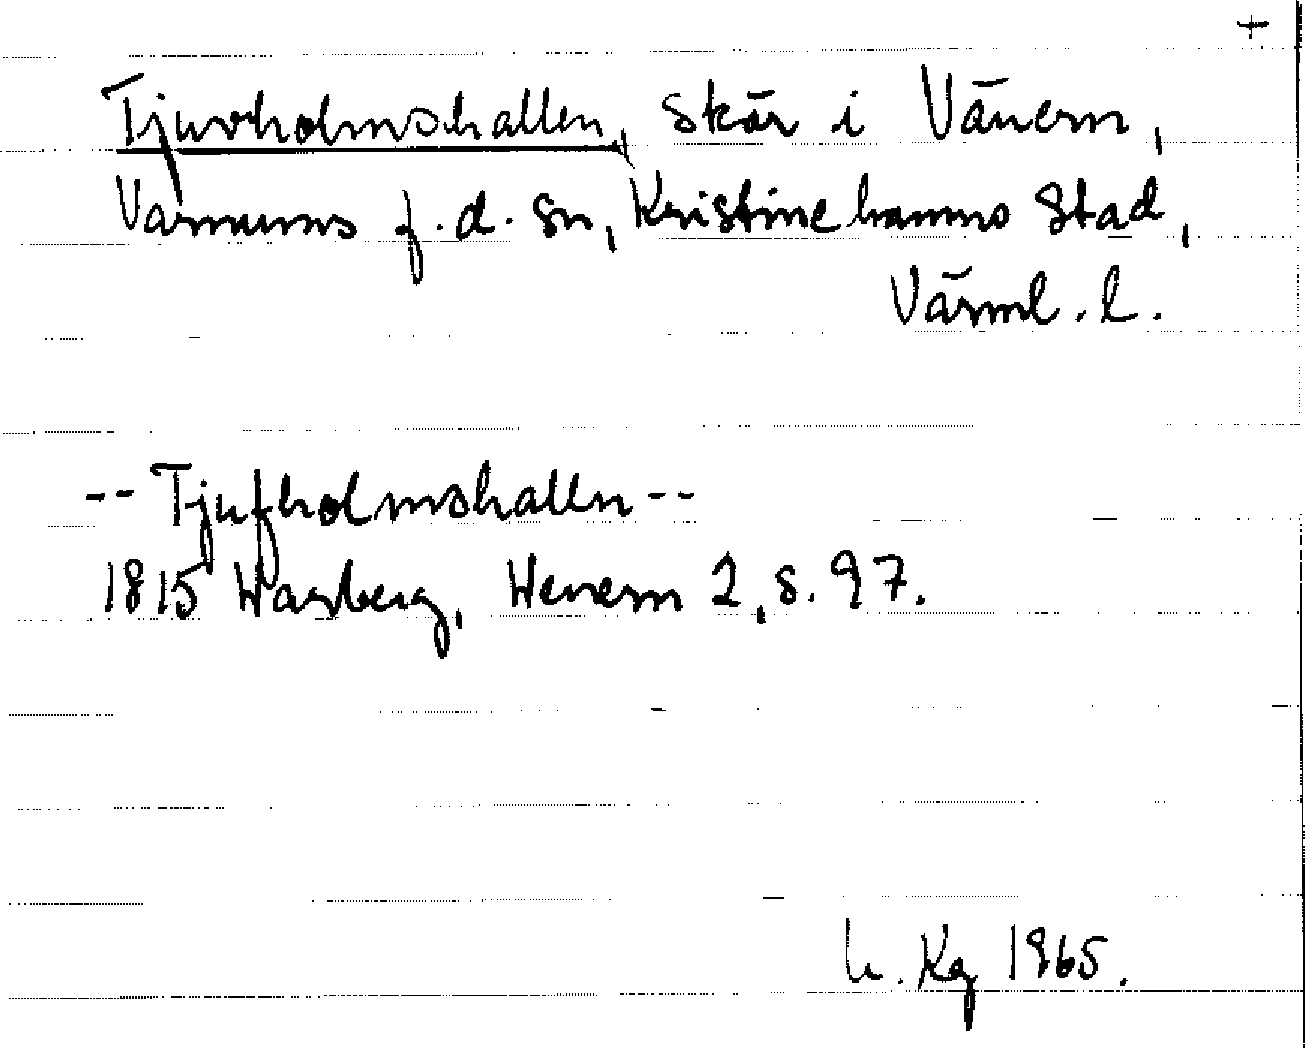 +
Tjuvholmshallen, skär i Vänern,
Varnums f.d. sn, Kristinehamns stad,
Värml. l.
-- Tjufholmshallen --
1815 Warberg, Wenern 2, s. 97.
h. Kg 1965.